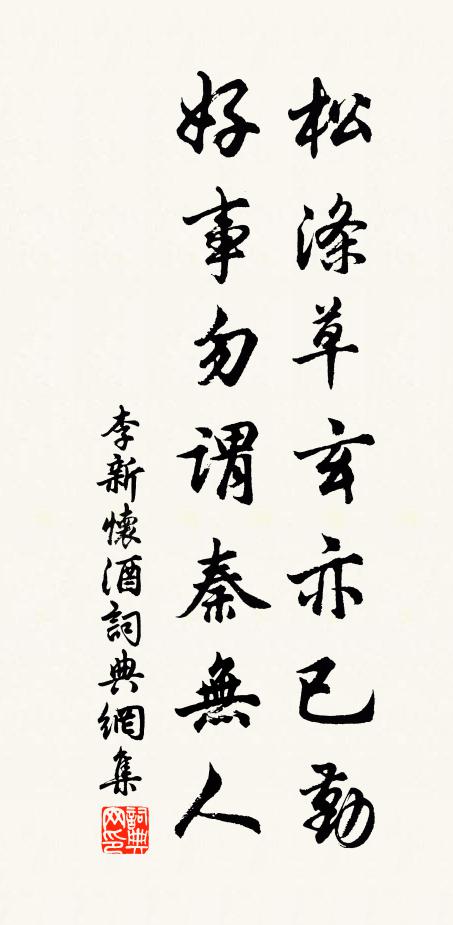 松滌草玄亦已勤
好事勿謂秦無人
李新懷酒詞典網集
詞典
网印